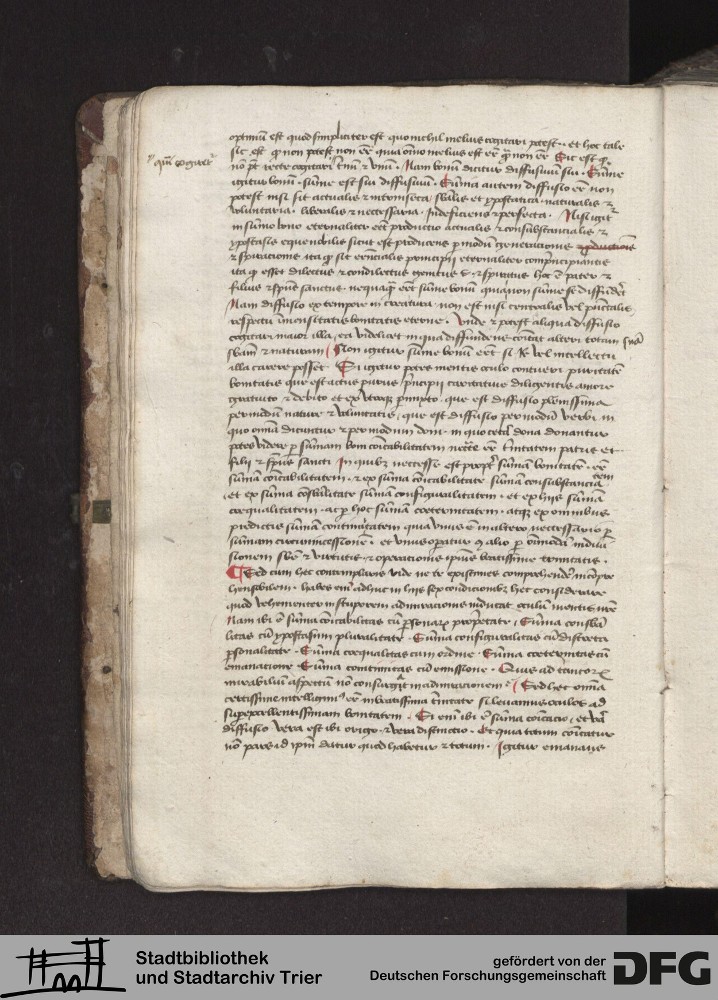 optimũ est quod simpliciter est quo nichil melius cogitari potest · et hoc tale
sic est ꝙ non potest non eẽ quia oĩno melius est eẽ ꝙ̃ non eẽ Sic est ꝙ
nõ põt recte cogitari trinũ et vnũ · Nam bonũ dicitur diffusiuũ sui · Sũme
igitur bonũ · sũme est sui diffusiuũ · Sũma autem diffusio eẽ non
potest nisi sit actualis et intrinseca sb̃alis et ypostatica · naturalis et
voluntaria · liberalis et necessaria · Indeficiens et perfecta · Nisi igit᷑
in sũmo bono eternaliter eẽt productio actualis et consubstancialis et
ypostasis eque nobilis sicut est producens ꝑ modũ generacionis
et spiracionis ita ꝙ sit eternalis principii eternaliter comprincipiantis
ita ꝙ esset dilectus et condilectus genitus et spiratus hoc ẽ pater et
filius et spũs sanctus · nequaꝙ̃ eẽt sũme bonũ quia non sũme se diffũdẽt
Nam diffusio ex tempore in creatura non est nisi centralis vel pũctalis
respectu ĩmensitatis bonitatis eterne · vnde et potest aliqua diffusio
cogitari maior illa / ea videlicet in qua diffundẽs cõicat alteri totam suã
sb̃am et naturam / Non igitur sũme bonũ eẽt si re vel intellectu
illa carere posset Si igitur potes mentis oculo contueri puritatẽ
bonitatis que est actus purus principii caritatiue diligentis amore
gratuito et debito et ex vtroqꝫ ꝑmixto · que est diffusio plenissima
per modũ nature et voluntatis / que est diffusio per modũ verbi in
quo om̃ia dicuntur et per modum doni in quo cetẽa dona donantur
potes videre ꝑ sũmam boni cõicabilitatem necẽe eẽ trinitatem patris et
filii et spũs sancti · In quibꝫ necesse est propt᷑ sũmã bonitatẽ · eẽ
sũmã cõicabilitatem · et ex sũma cõicabilitate sũmã consubstancialitatem
et ex sũma cõsb̃ilitate sũmã configuralitatem · et ex hiis sũmã
coequalitatem · ac ꝑ hoc sũmã coeternitatem · atqꝫ ex omnibus
predictis sũmã cointimitatem qua vnus ẽ in altero necessario ꝑ
sũmam circumincessionẽ · et vnus operatur cũ alio ꝑ oĩmodã indiui
sionem sb̃e et virtutis · et operacionis ipsius beatissime trinitatis ·
Sed cum hec contemplaris vide ne te existimes comprehendẽ incõpre
hensibilem · habes eni᷑ adhuc in hiis sex condicionibꝫ hec considerare
quod vehementer in stuporem admiracionis inducat oculũ mentis nr̃e
Nam ibi ẽ sũma cõicabilitas cũ ꝑsonarꝫ proprietate / Sũma consb̃ã
litas cũ ypostasium pluralitate · Sũma configuralitas cũ discreta
ꝑsonalitate · Sũma coequalitas cum ordine · Sũma coeternitas cũ
emanacione · Sũma cointimitas cũ emissione · Quis ad tantorꝫ
mirabiliũ aspectum nõ consurgit in admiracionem · Sed hec om̃ia
certissime intelligimꝰ eẽ in beatissima trinitate si leuamus oculos ad
superexcellentissimam bonitatem · Si eni᷑ ibi ẽ sũma cõicacio / et vera
diffusio vera est ibi origo · et vera distinctio · Et quia totum cõicatur
nõ pars ideo ipsm̃ datur quod habetur et totum · Igitur emanans
Stadtbibliothek
und Stadtarchiv Trier
gefördert von der
Deutschen Forschungsgemeinschaft
DFG